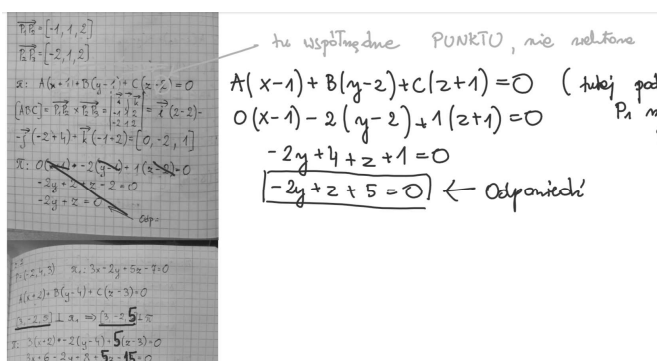 P₁P₂ = [-1, 1, 2]
P₂P₃ = [-2, 1, 2]
π: A(x+1)+B(y-1)+C(z-2)=0
[ABC] = P₁P₂ × P₂P₃ = | i j k -1 1 2 -2 1 2 | = i(2-2)-
-j(-2+4)+k(-1+2)=[0, -2, 1]
π: 0(x+1)+-2(y-1)+1(z-2)=0
-2y+2+z-2=0
-2y+z=0
odp=
P=[-2,4,3) π₁: 3x-2y+5z-7=0
A(x+2)+B(y-4)+C(z-3)=0
[3,-2,5] ⊥ π₁ ⇒ [3,-2,5] ⊥ π
π: 3(x+2)+-2(y-4)+5(z-3)=0
3x+6-2y+8+5z-15=0
tu współrzędne PUNKTU, nie wektora
A(x-1)+B(y-2)+C(z+1)=0 (tutaj pod
0(x-1)-2(y-2)+1(z+1)=0 P₁
-2y+4+z+1=0
-2y+z+5=0 ← Odpowiedź